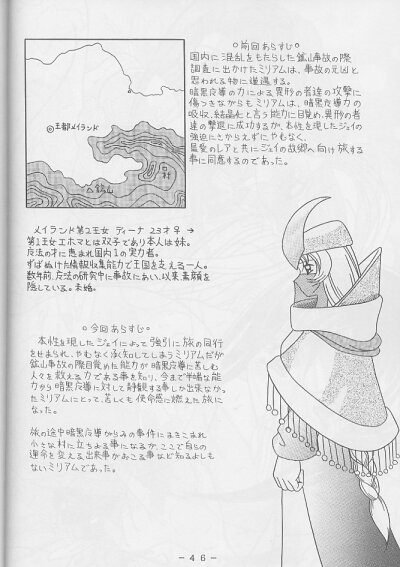 ○前回あらすじ○
国内に混乱をもたらした鉱山事故の際
調査に出かけたミリアムは、事故の元凶と
思われる物に遭遇する。
暗黒の力による異形の者達の攻撃に
傷つきながらもミリアムは、暗黒の力の
吸収、結晶化と言う能力に目覚め、異形の者
達の撃退に成功するが、本性を現したジェイの
強迫にさからえずにやむなく、
最愛のレアと共にジェイの故郷へ向け旅する
事に同意するのであった。
◎王都メイランド
鉱山
メイランド第2王女 ディーナ 23才♀ →
第1王女エホマとは双子であり本人は妹。
の才に恵まれ国内1の実力者。
ずばぬけた情報収集能力で王国を支える一人。
数年前、の研究中に事故にあい、以来、素顔を
隠している。未婚。
○今回あらすじ○
本性を現したジェイによって強引に旅の同行
をせまられ、やむなく承知してしまうミリアムだが
鉱山事故の際目覚めた能力が暗黒に苦しむ
人々を救える力である事を知り、今まで半端な能
力から暗黒に対して静観する事しか出来なかっ
たミリアムにとって、苦しくも使命感に燃えた旅に
なった。
旅の途中暗黒がらみの事件にまきこまれ
小さな村に立ちよる事になるが、ここで自らの
運命を変える出来事がおこる事など知るよしも
ないミリアムであった。
-46-